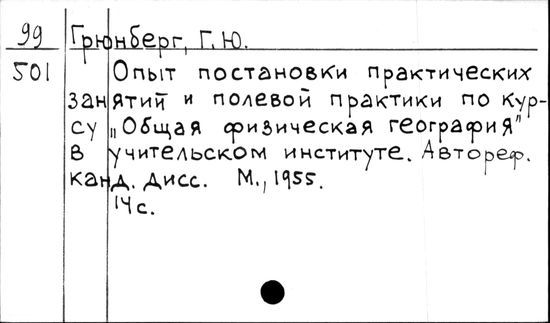 99 Грюнберг, Г.Ю.
501 Опыт постановки практических
занятий и полевой практики по кур-
су „Общая физическая география"
в учительском институте. Автореф.
канд. дисс. М., 1955.
14с.